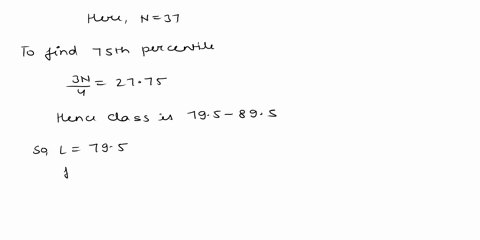 Here, N=37
To find 75th percentile
3N/4 = 27.75
Hence class is 79.5-89.5
so, L = 79.5
f